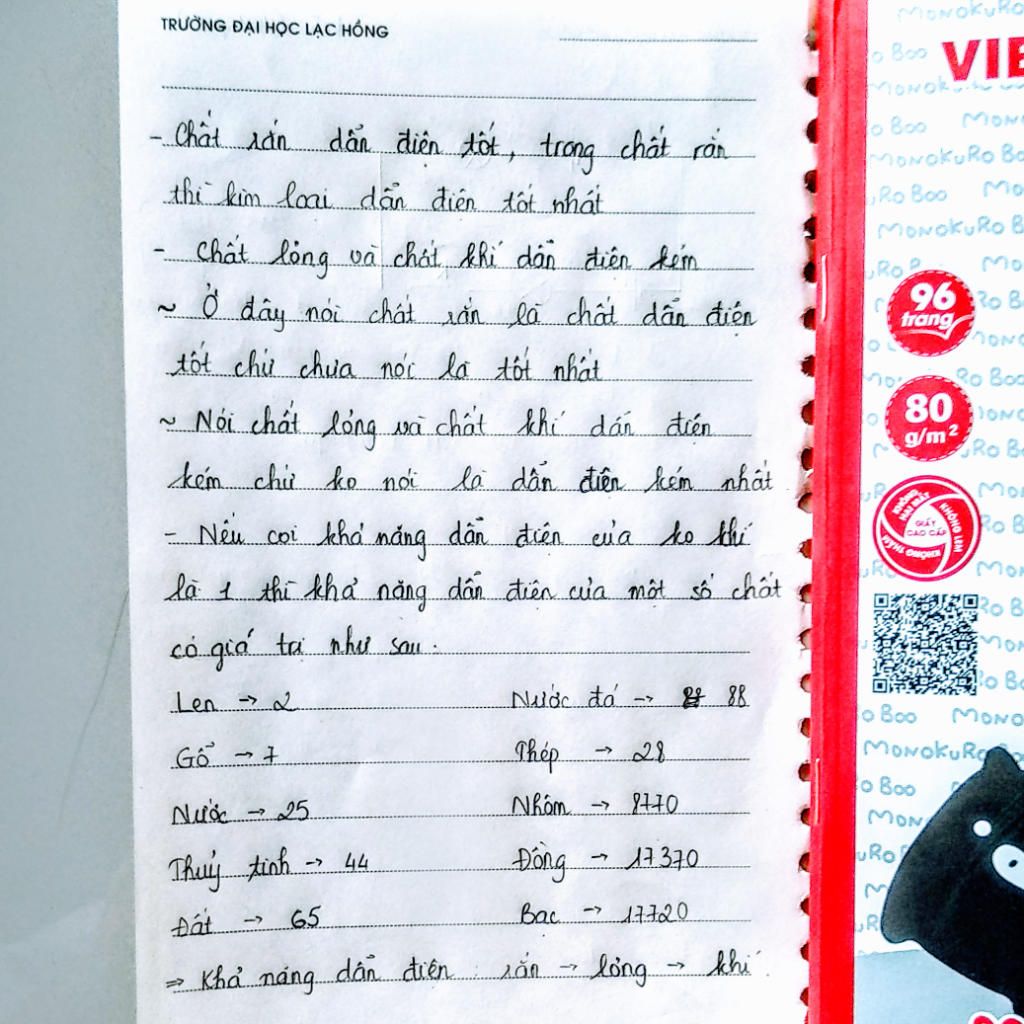 TRƯỜNG ĐẠI HỌC LẠC HỒNG
- Chất rắn dẫn điện tốt, trong chất rắn
thì kim loại dẫn điện tốt nhất
- Chất lỏng và chất khí dẫn điện kém
~ Ở đây nói chất rắn là chất dẫn điện
tốt chứ chưa nói là tốt nhất
~ Nói chất lỏng và chất khí dẫn điện
kém chứ ko nói là dẫn điện kém nhất
- Nếu coi khả năng dẫn điện của ko khí
là 1 thì khả năng dẫn điện của một số chất
có giá tại như sau.
Len → 2 Nước đá → 88
Gổ → 7 Thép → 28
Nước → 25 Nhôm → 8770
Thuỷ tinh → 44 Đồng → 17370
Đất → 65 Bạc → 17720
⇒ Khả năng dẫn điện : rắn → lỏng → khí.
VIE
96
trang
80
g/m²
KHÔNG LEM
KHÔNG THẤM
GIẤY
CAO CẤP
MONOKURO BOO